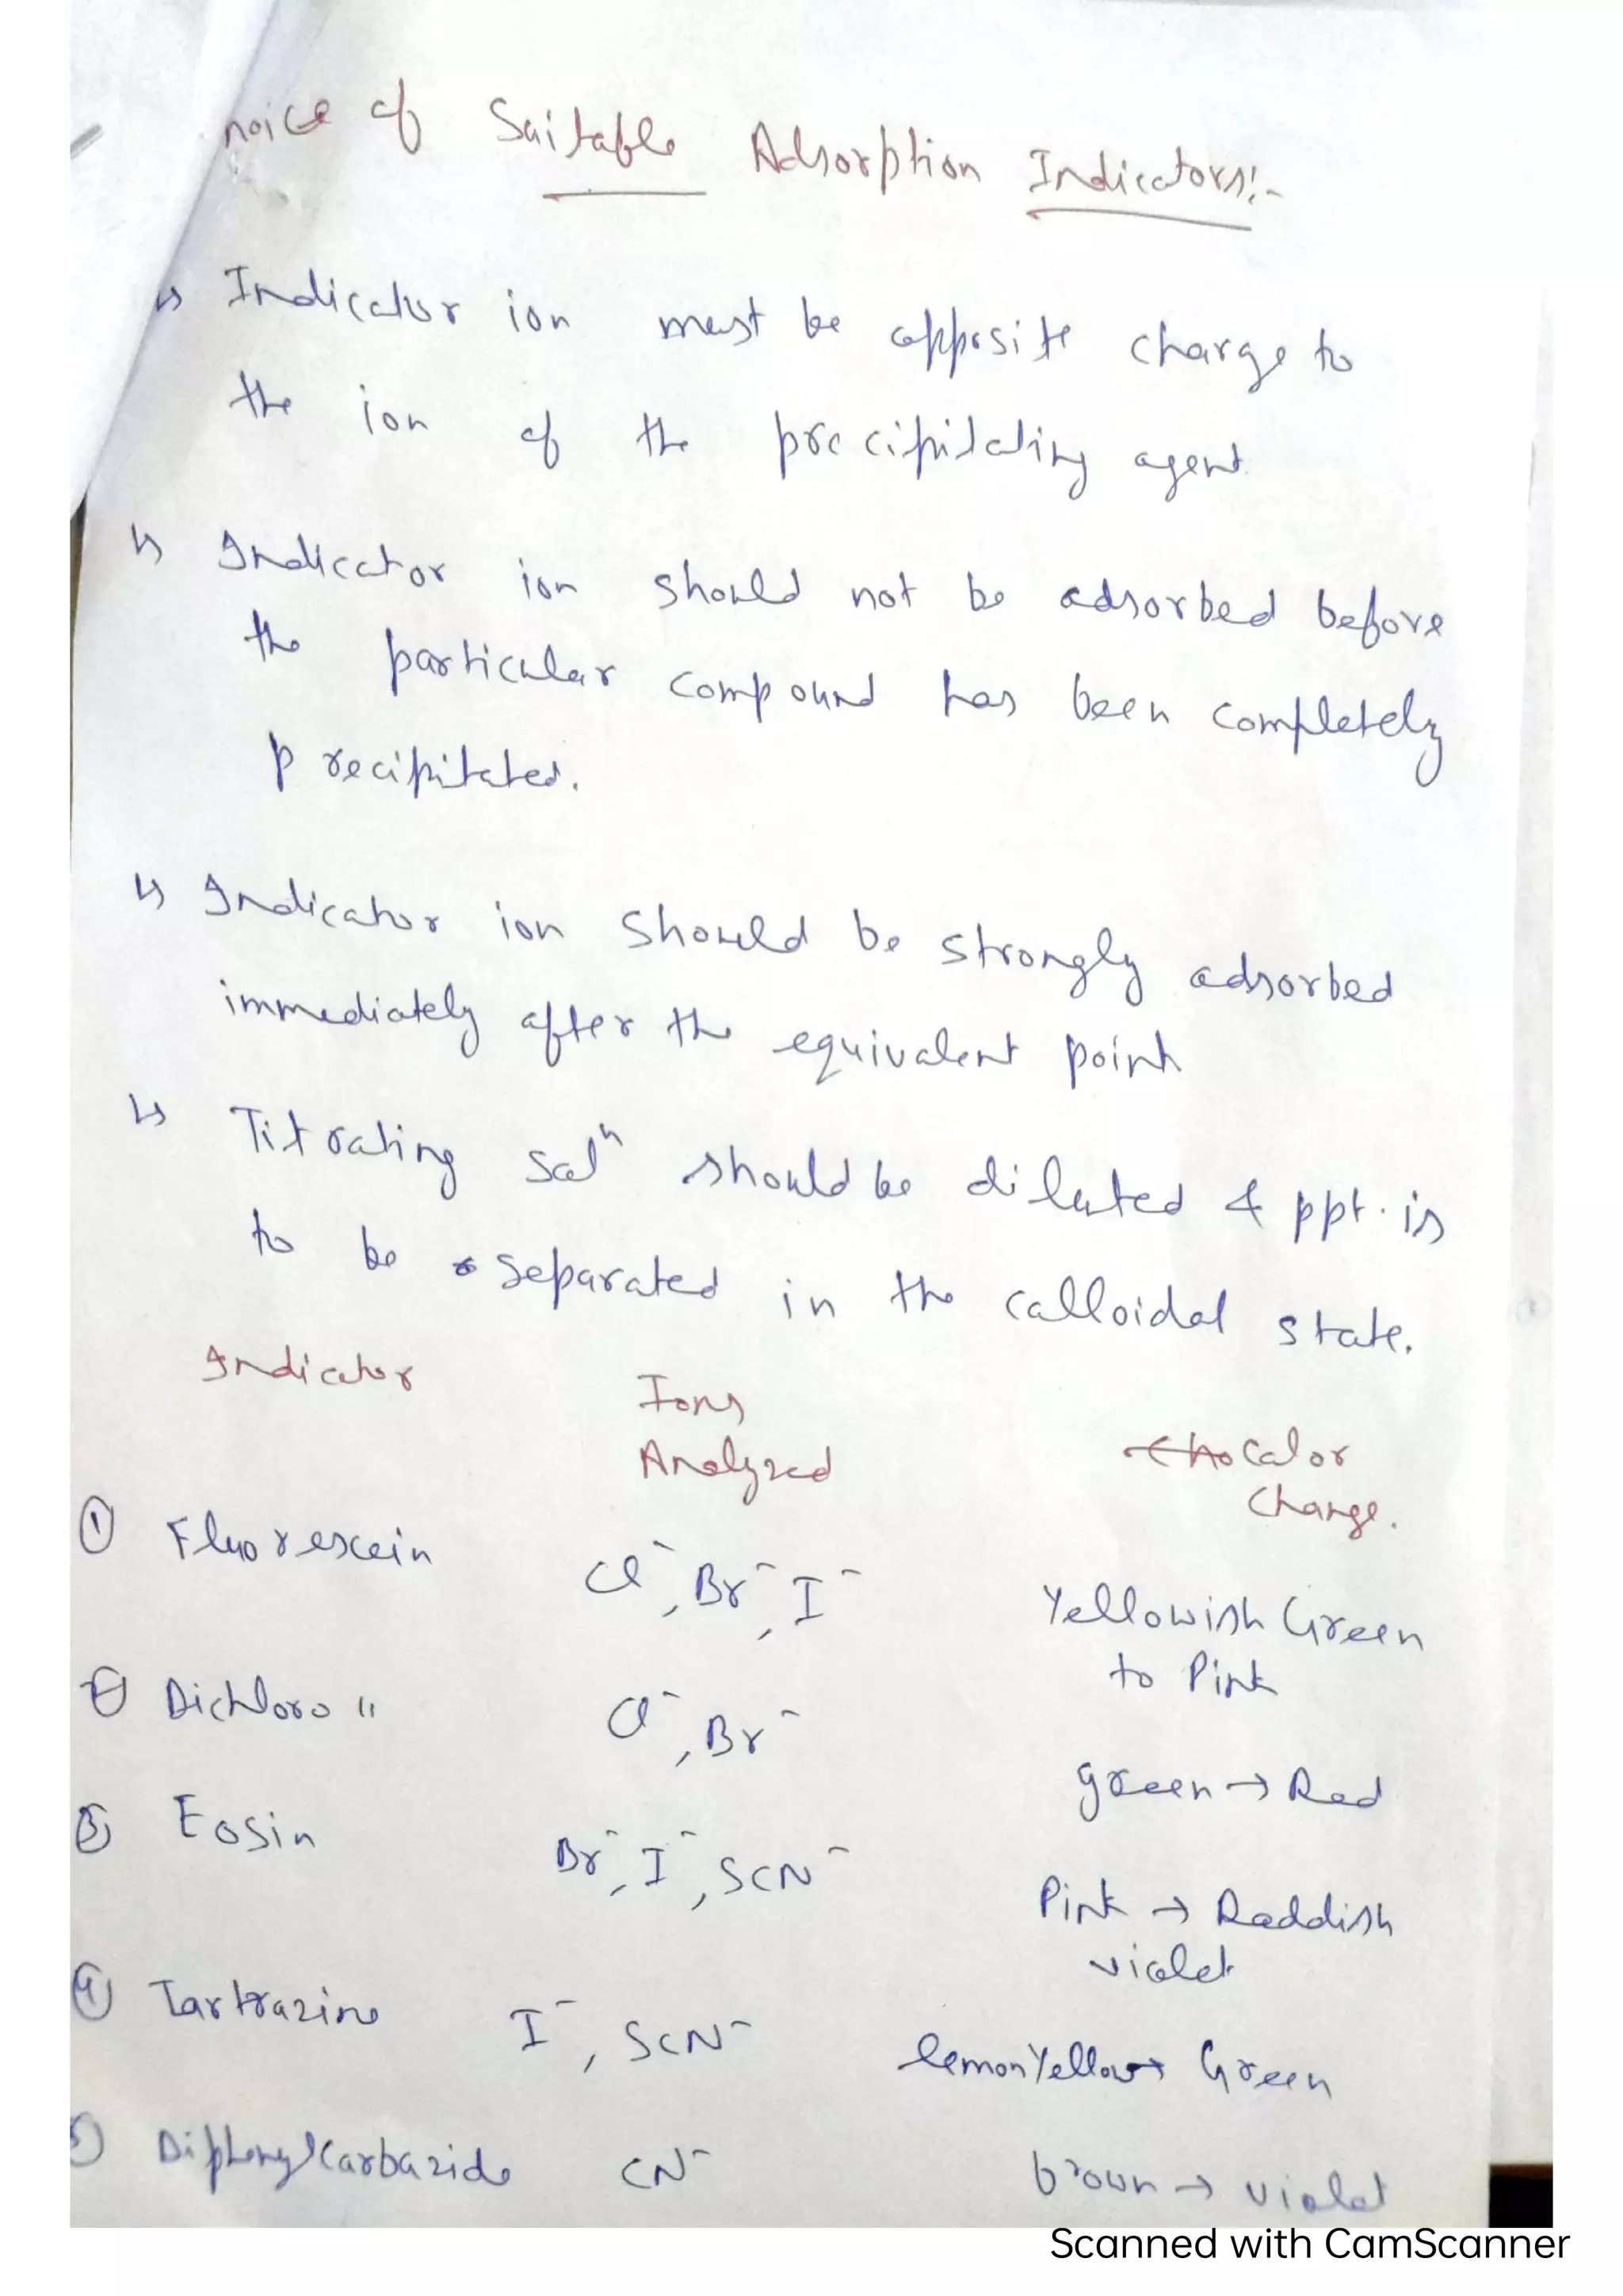 noice of Suitable Adsorption Indicators:-
↳ Indicator ion must be opposite charge to
the ion of the precipitating agent.
↳ Indicator ion should not be adsorbed before
the particular compound has been completely
precipitated.
↳ Indicator ion should be strongly adsorbed
immediately after the equivalent point
↳ Titrating solⁿ should be diluted & ppt. is
to be separated in the colloidal state.
Indicator Ions Color
Analyzed Change.
① Fluorescein Cl⁻, Br⁻, I⁻ Yellowish Green
to Pink
② Dichloro " Cl⁻, Br⁻ green → Red
③ Eosin Br⁻, I⁻, SCN⁻ Pink → Reddish
violet
④ Tartrazine I⁻, SCN⁻ lemon Yellow → Green
5) Diphenylcarbazide CN⁻ brown → violet
Scanned with CamScanner